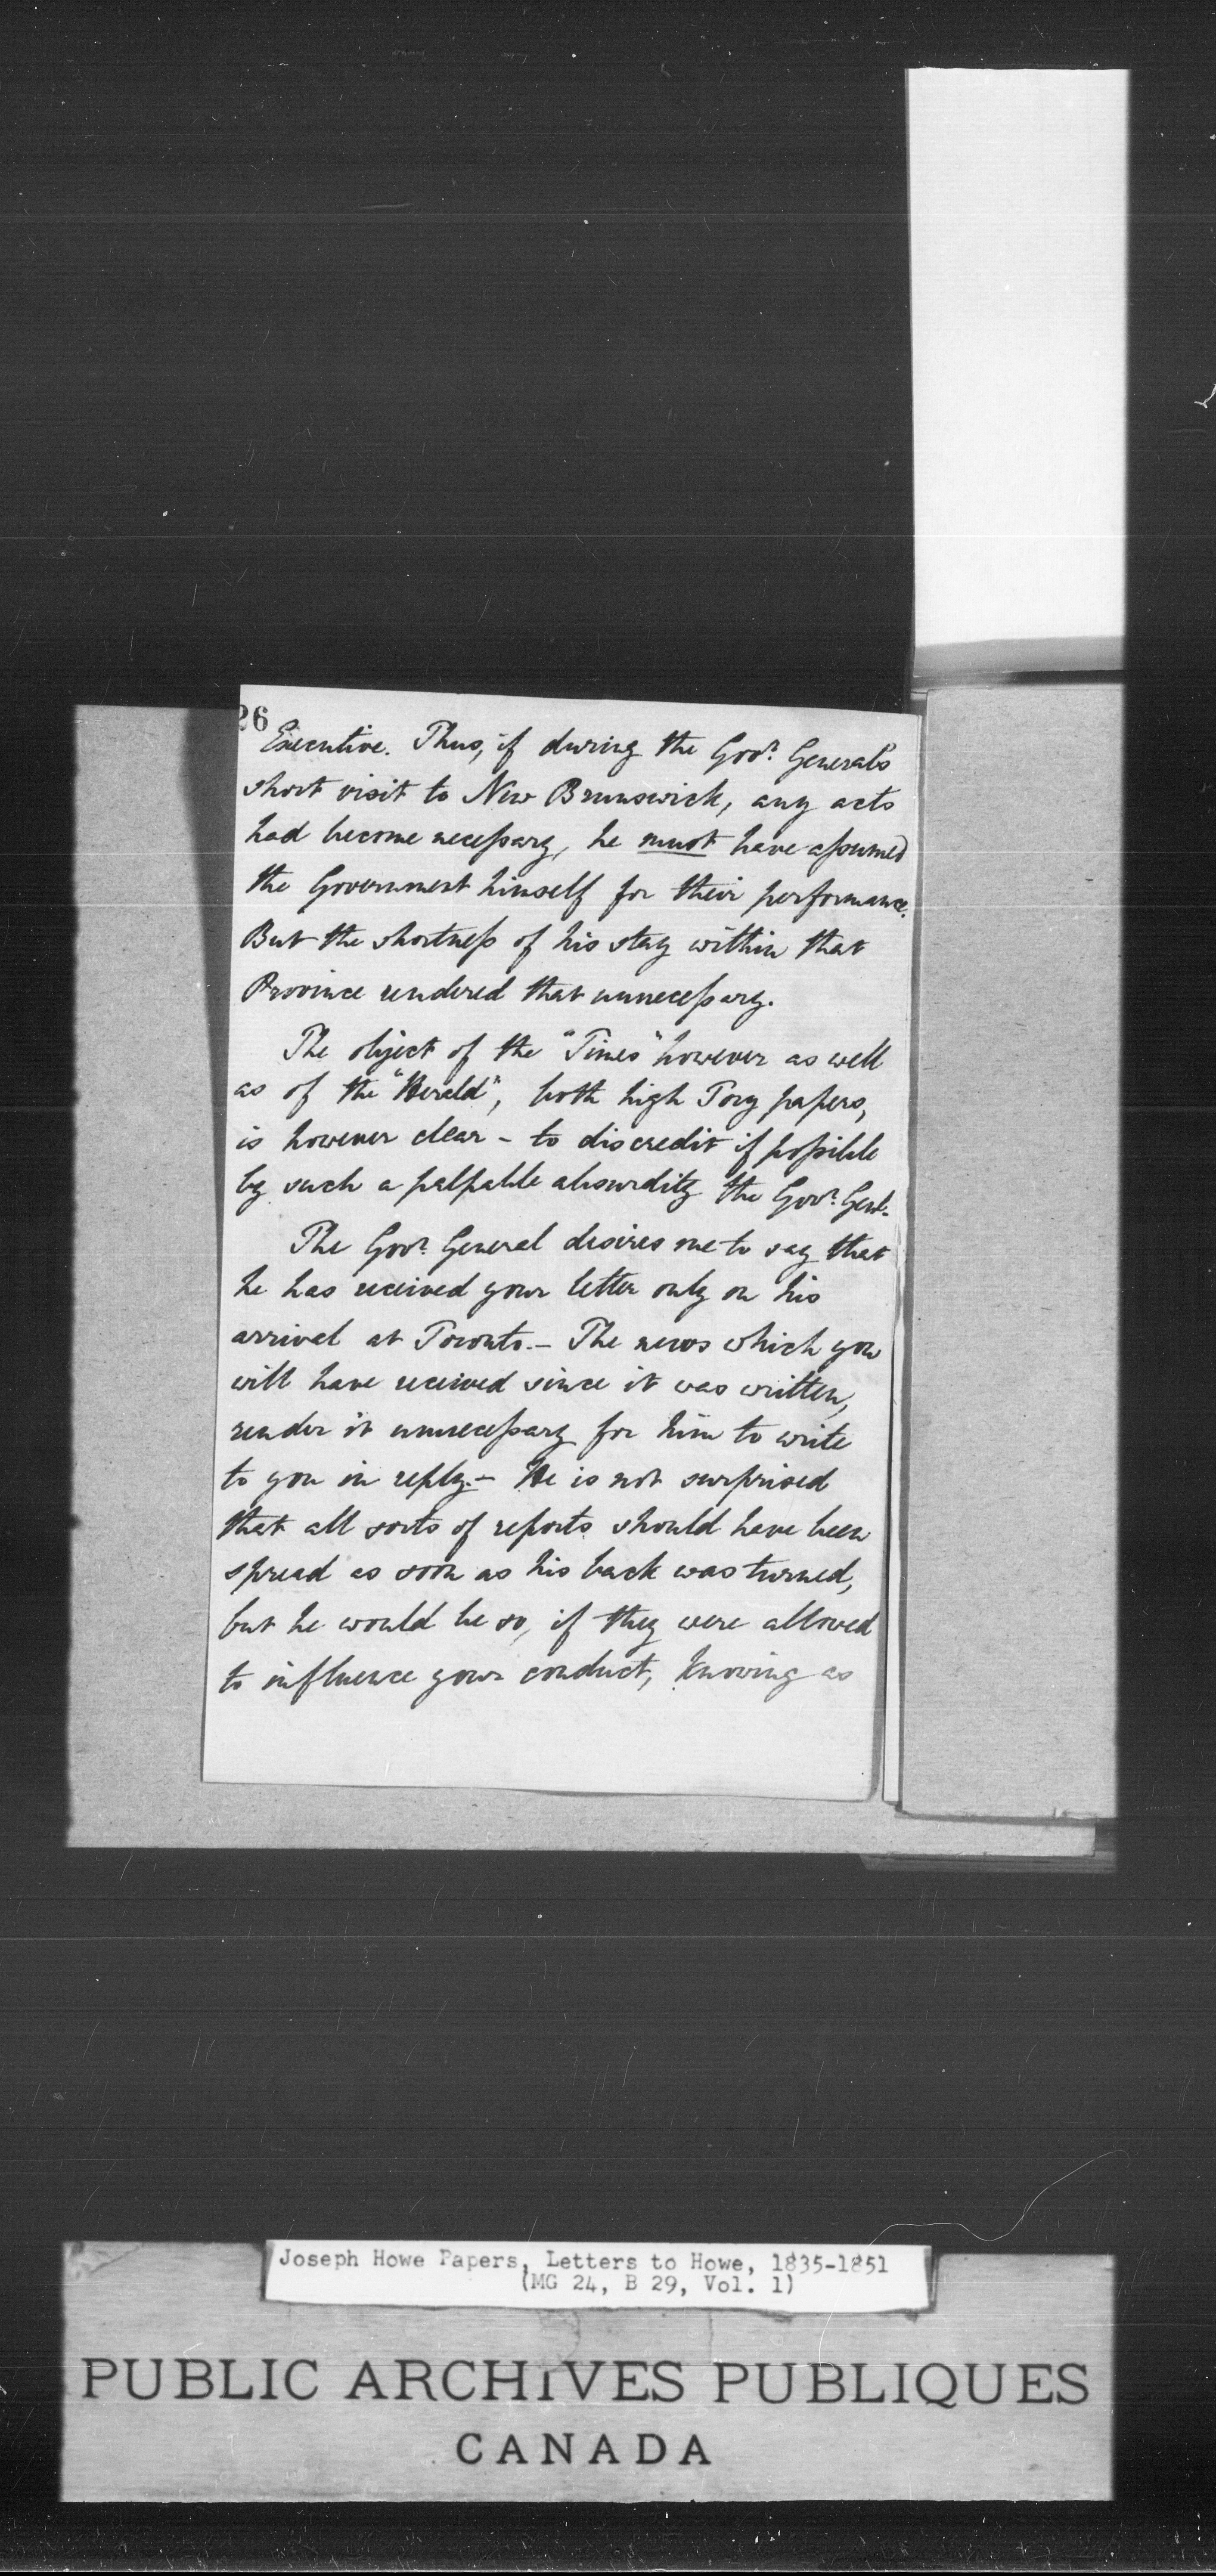 26
Executive. Thus, if during the Govr. General's
short visit to New Brunswick, any acts
had become necessary, he must have assumed
the Government himself for their performance.
But the shortness of his stay within that
Province rendered that unnecessary.
The object of the "Times" however as well
as of the "Herald", both high Tory papers,
is however clear - to discredit if possible
by such a palpable absurdity the Govr. Genl.
The Govr. General desires me to say that
he has received your letter only on his
arrival at Toronto. - The news which you
will have received since it was written,
render it unnecessary for him to write
to you in reply. - He is not surprised
that all sorts of reports should have been
spread as soon as his back was turned,
but he would be so, if they were allowed
to influence your conduct, knowing as
Joseph Howe Papers, Letters to Howe, 1835-1851
(MG 24, B 29, Vol. 1)
PUBLIC ARCHIVES PUBLIQUES
CANADA